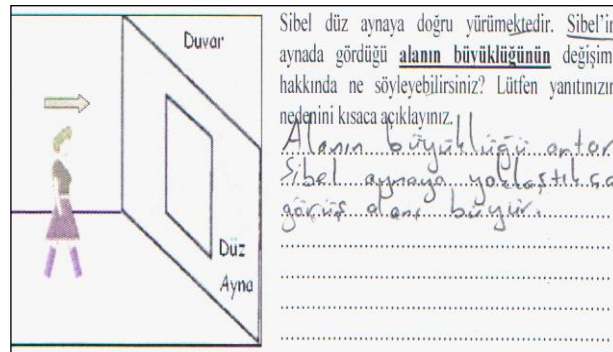 Duvar
Düz
Ayna
Sibel düz aynaya doğru yürümektedir. Sibel'in
aynada gördüğü alanın büyüklüğünün değişimi
hakkında ne söyleyebilirsiniz? Lütfen yanıtınızın
nedenini kısaca açıklayınız.
Alanın büyüklüğü artar
Sibel aynaya yaklaştıkça
görüş alanı büyür.